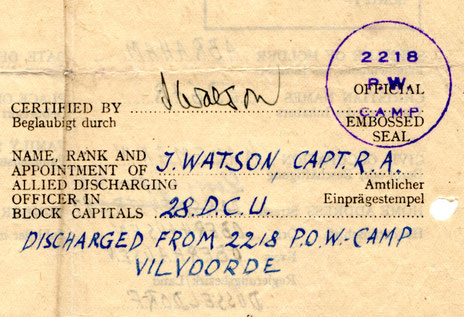 2218
P.W.
CAMP
OFFICIAL
EMBOSSED
SEAL
CERTIFIED BY J Watson
Beglaubigt durch
NAME, RANK AND
APPOINTMENT OF
ALLIED DISCHARGING
OFFICER IN
BLOCK CAPITALS
J. WATSON, CAPT. R.A.
Amtlicher
Einprägestempel
28. D.C.U.
DISCHARGED FROM 2218 P.O.W-CAMP
VILVOORDE